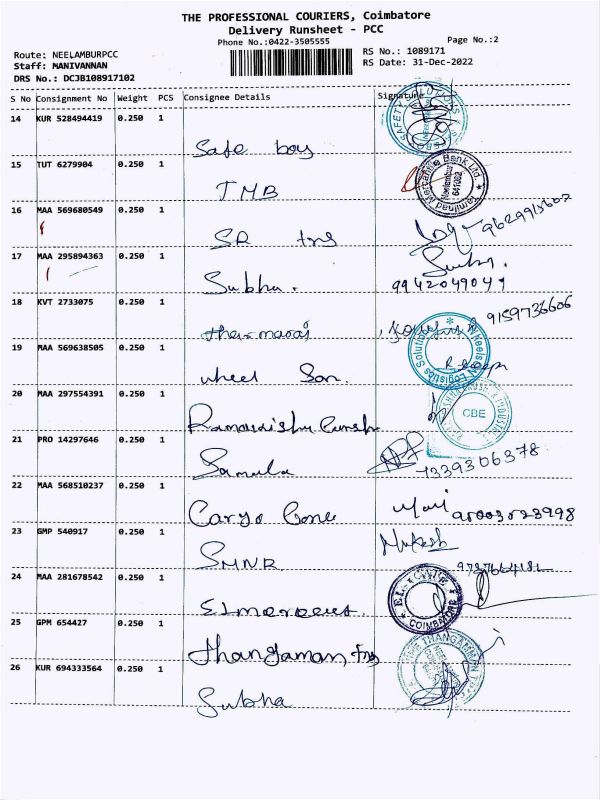 THE PROFESSIONAL COURIERS, Coimbatore
Delivery Runsheet - PCC
Phone No.:0422-3505555
Page No.:2
Route: NEELAMBURPCC
RS No.: 1089171
Staff: MANIVANNAN
RS Date: 31-Dec-2022
DRS No.: DCJB108917102
S No Consignment No Weight PCS Consignee Details Signature
14 KUR 528494419 0.250 1
Safe boy
SAFETY
15 TUT 6279904 0.250 1
TMB
Tamilnad Mercantile Bank Ltd.
Neelambur
641062
16 MAA 569680549 0.250 1
SR tns
17 MAA 295894363 0.250 1
Subha.
9942049049
18 KVT 2733075 0.250 1
9159736606
19 MAA 569638505 0.250 1
wheel Son.
Wheelson Logistics Solutions
20 MAA 297554391 0.250 1
CBE
21 PRO 14297646 0.250 1
Samula
7339306378
22 MAA 568510237 0.250 1
Cargo Cone
23 GMP 540917 0.250 1
SMNR
Mukesh
24 MAA 281678542 0.250 1
COIMBATORE
25 GPM 654427 0.250 1
Thangaman, tns
THANGAMMAN
26 KUR 694333564 0.250 1
Subha